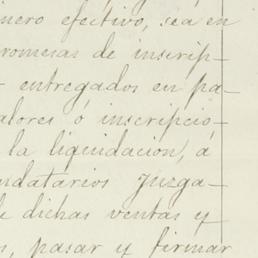 nero efectivo, sea en
romesas de inscrip-
- entregados en pa-
alores ó inscripció-
la liquidación, á
ndatarios juzga-
e dichas ventas y
s, pasar y firmar